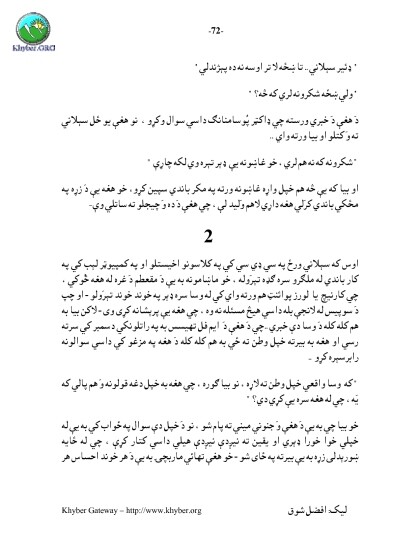 -72-
Khyber.ORG
" ډئير سېلاني.. تا ښځه لا تر اوسه نه ده پېژندلي "
"ولي ښځه شکر ونه لري که څه؟ "
دَ هغې دَ خبري ورسته چي ډاکټر پُوسامنانګ داسي سوال وکړو ، نو هغې يو ځل سېلاني
ته وَکتلو او بيا ورته واي ..
"شکرونه که نه هم لري ، خو غاښونه يې ډېر تېره وي لکه چاړې "
او بيا که يې څه هم خپل واړه غاښونه ورته په مکر باندي سپين کړو ، خو هغه يې دَ زړه په
مځکي باندي کرلي هغه داړي لاهم وَليد لې ، چي هغې دَ ده وَ چيچلو ته ساتلي وې-
2
اوس که سېلاني ورځ په سي ډي سي کي په کلاسونو اخيستلو او په کمپيوټر لېب کي په
کار باندي له ملګرو سره ګډه تېروَله ، خو ماښامونه به يې دَ مقعطم دَ غره له هغه څوکي ،
چي کارنيچ يا لورز پوائنټ هم ورته واي کي له وسا سره ډېر په خوند خوند تېروَلو - او چپ
دَ سوېيس له لانجې بله داسي هيڅ مسئله نه وه ، چي هغه يې پرېشانه کړي وی - لاکن بيا به
هم کله کله دَ وسا دې خبري ..چي دَ هغې دَ ايم فل تهيسس به په راتلونکي دسمبر کي سرته
رسي او هغه به بيرته خپل وطن ته ځي به هم کله کله دَ هغه په مزغو کي داسي سوالونه
رابرسېره کړو ..
"که وسا واقعي خپل وطن ته لاړه ، نو بيا ګوره ، چي هغه به خپل دغه قولونه وَ هم پالي که
نه ، چي له هغه سره يې کړي دي؟ "
خو بيا چي به يې دَ هغې وَ جنوني ميني ته پام شو ، نو دَ خپل دې سوال په ځواب کي به يې له
خپلي خوا خورا ډېري او يقين ته نېږدې نېږدې هيلي داسي کتار کړې ، چي له ځايه
ښورېدلی زړه به يې بيرته په ځای شو - خو هغې تهائي ماربچئ به يې دَ هر خوند احساس هر
Khyber Gateway – http://www.khyber.org
ليک: افضل شوق